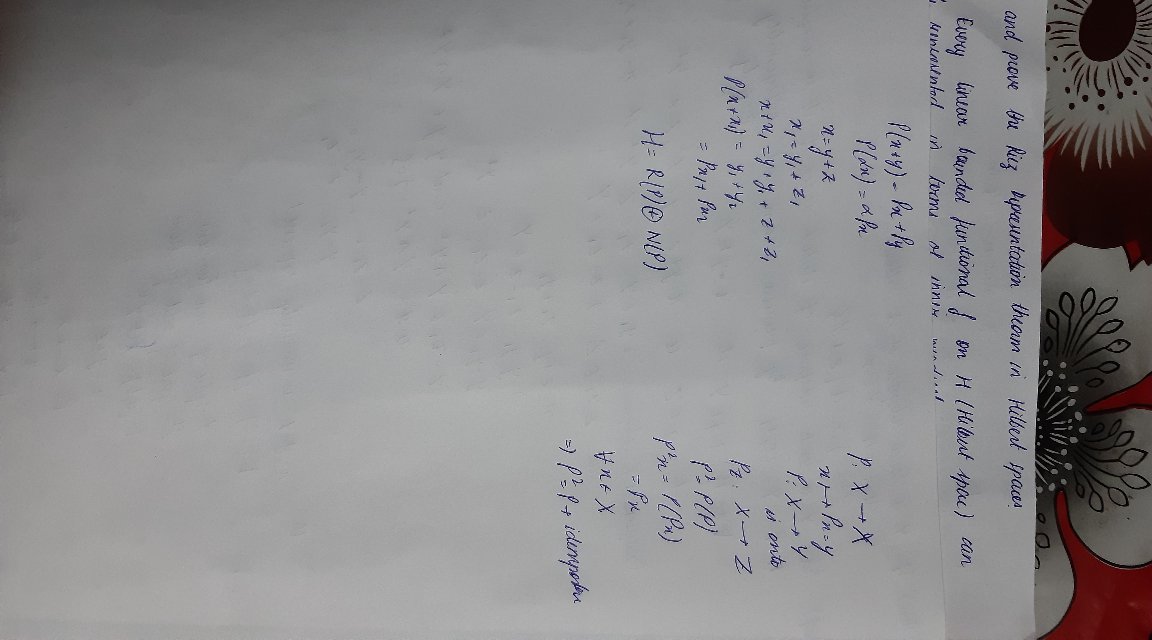 and prove the Riez Representation theorem in Hilbert spaces.
Every linear bounded functional f on H (Hilbert space) can
represented in terms of inner product
P(x+y) = Px + Py
P(αx) = αPx
x = y + z
x₁ = y₁ + z₁
x+x₁ = y+y₁ + z+z₁
P(x+x₁) = y₁+y₂
= Px₁+ Px₂
H = R(P) ⊕ N(P)
P: X → X
x ↦ Px = y
P: X → Y
is onto
P_Z: X → Z
P² = P(P)
P²x = P(Px)
= Px
∀ x ∈ X
⇒ P² = P →